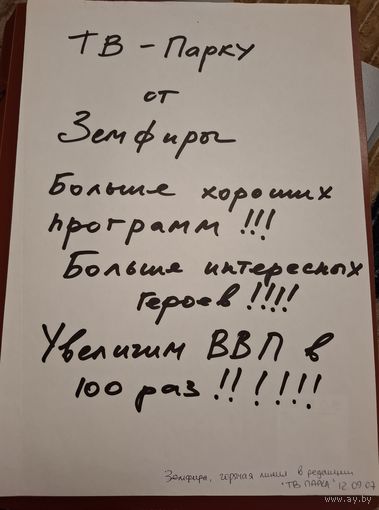 ТВ - Парку
от
Земфиры
Больше хороших
программ !!!
Больше интересных
героев !!!!
Увеличим ВВП в
100 раз !! ! ! !!
Земфира, горячая линия в редакции
"ТВ ПАРКА" 12.09.07
www.ay.by